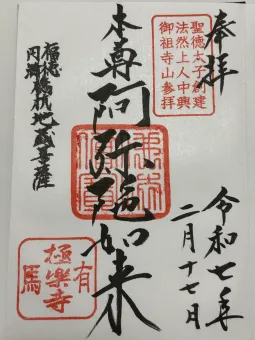 奉拝
聖徳太子創建
法然上人中興
御祖寺山参拝
本尊 阿弥陀如来
令和七年
二月十七日
有馬
極楽寺